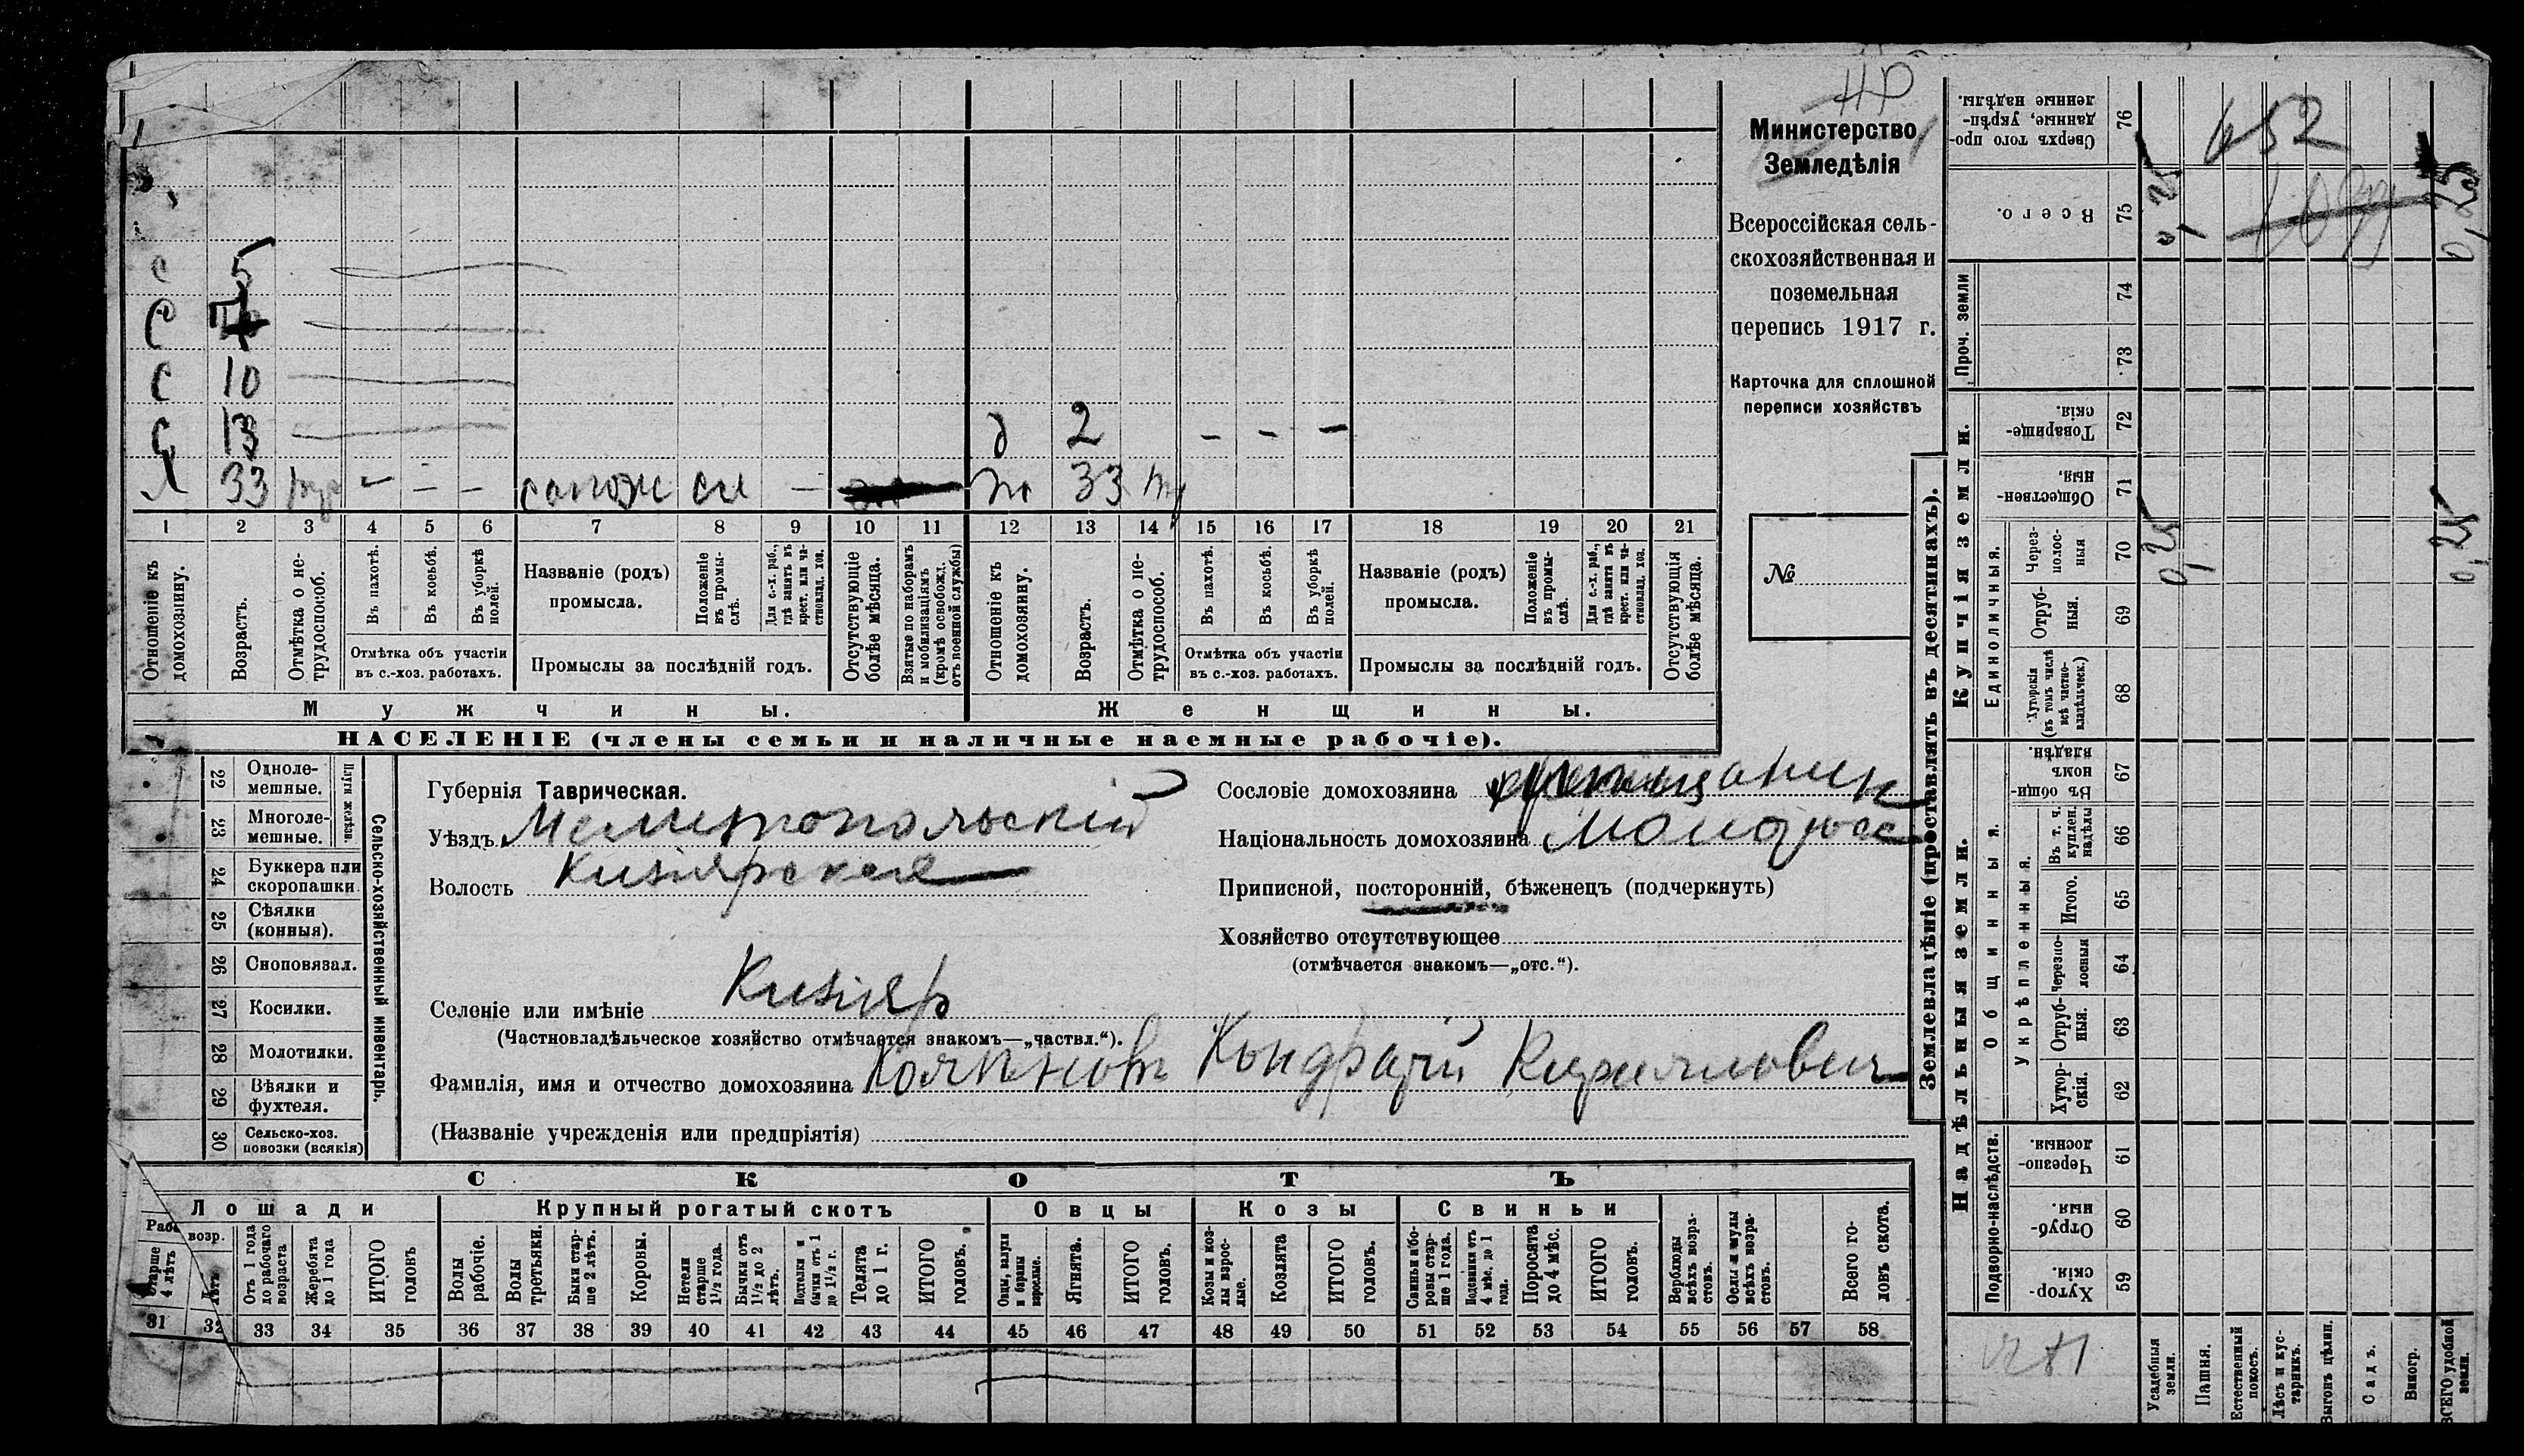 нр
Министерство
Земледѣлія
Всероссійская сель-
скохозяйственная и
поземельная
перепись 1917 г.
Карточка для сплошной
переписи хозяйствъ
№
с 5
с
с 10
с 13 д 2 - - -
Я 33 - - - сапож - 33
1 2 3 4 5 6 7 8 9 10 11 12 13 14 15 16 17 18 19 20 21
Отношеніе къ домохозяину.
Возрастъ.
Отмѣтка о не-трудоспособ.
Въ пахотѣ.
Въ косьбѣ.
Въ уборкѣ полей.
Отмѣтка объ участіи
въ с.-хоз. работахъ.
Названіе (родъ)
промысла.
Положеніе въ промы-слѣ.
Для с.-х. раб., гдѣ занятъ въ крест. или ча-стновлад. хоз.
Промыслы за послѣдній годъ.
Отсутствующіе болѣе мѣсяца.
Взятые по наборамъ и мобилизаціямъ (кромѣ освобожд. отъ военной службы)
Отношеніе къ домохозяину.
Возрастъ.
Отмѣтка о не-трудоспособ.
Въ пахотѣ.
Въ косьбѣ.
Въ уборкѣ полей.
Отмѣтка объ участіи
въ с.-хоз. работахъ.
Названіе (родъ)
промысла.
Положеніе въ промы-слѣ.
Для с.-х. раб., гдѣ занята въ крест. или ча-стновлад. хоз.
Промыслы за послѣдній годъ.
Отсутствующія болѣе мѣсяца.
Мужчины. Женщины.
НАСЕЛЕНІЕ (члены семьи и наличные наемные рабочіе).
22 Одноле-
мешные.
23 Многоле-
мешные.
Плуги желѣзн.
24 Буккера или
скоропашки.
25 Сѣялки
(конныя).
26 Сноповязал.
27 Косилки.
28 Молотилки.
29 Вѣялки и
фухтеля.
30 Сельско-хоз.
повозки (всякія)
Сельско-хозяйственный инвентарь.
Губернія Таврическая.
Уѣздъ Мелитопольскій
Волость Кизіярская
Селеніе или имѣніе Кизіяр
(Частновладѣльческое хозяйство отмѣчается знакомъ—„частвл.“).
Фамилія, имя и отчество домохозяина Кондратій Кириллович
(Названіе учрежденія или предпріятія)
Сословіе домохозяина
Національность домохозяина Малорос
Приписной, посторонній, бѣженецъ (подчеркнуть)
Хозяйство отсутствующее
(отмѣчается знакомъ—„отс.“).
СКОТЪ
Лошади Крупный рогатый скотъ Овцы Козы Свиньи
возр.
Старше 4 лѣтъ
Отъ 1 года до рабочаго возраста
Жеребята до 1 года
ИТОГО головъ
Волы рабочіе.
Волы третьяки.
Быки стар-ше 2 лѣтъ.
Коровы.
Нетели старше 1½ года.
Бычки отъ 1½ до 2 лѣтъ.
Подтелки и бычки отъ 1 до 1½ г.
Телята до 1 г.
ИТОГО головъ.
Овцы, валухи и бараны взрослые.
Ягнята.
ИТОГО головъ.
Козы и коз-лы взрос-лые.
Козлята
ИТОГО головъ.
Свиньи и бо-ровы стар-ше 1 года.
Подсвинки отъ 4 мѣс. до 1 года.
Поросята до 4 мѣс.
ИТОГО головъ.
Верблюды всѣхъ возра-стовъ.
Ослы и мулы всѣхъ возра-стовъ.
Всего го-ловъ скота.
31 32 33 34 35 36 37 38 39 40 41 42 43 44 45 46 47 48 49 50 51 52 53 54 55 56 57 58
Землевладѣніе (проставлять въ десятинахъ).
Надѣльныя земли. Купчія земли. Проч. земли
Подворно-наслѣдств.
Общинныя.
Укрѣпленныя.
Единоличныя.
Хутор-скія 59
Отруб-ныя 60
Черезпо-лосныя 61
Хутор-скія. 62
Отруб-ныя. 63
Черезпо-лосныя 64
Итого. 65
Въ т. ч. куплен. надѣлы 66
Въ общин-номъ владѣн. 67
Хуторскія (въ томъ числѣ всѣ частно-владѣльческ.) 68
Отруб-ныя. 69
Через-полос-ныя 70
Обществен-ныя. 71
Товарище-скія. 72
73
74
Всего. 75
Сверхъ того про-данные, укрѣп-ленные надѣлы. 76
Усадебныя земли. 0,25 0,25
Пашня.
Естественный покосъ.
Лѣсъ и кус-тарникъ.
Выгонъ цѣлин.
Садъ.
Виногр.
ВСЕГО удобной земли. 0,25 0,25
652